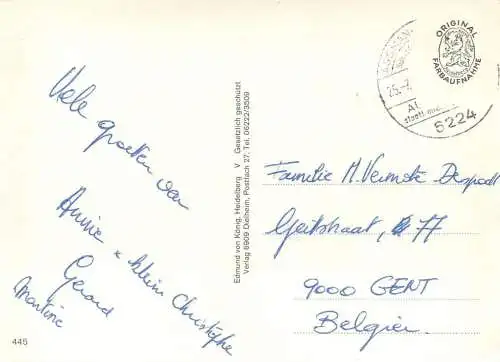 Vele groeten van
Annie x klein Christophe
Gerard
Martine
445
Edmund von König, Heidelberg V Gesetzlich geschützt
Verlag 6909 Dielheim, Postfach 27, Tel. 06222/3509
ORIGINAL
FARBAUFNAHME
25.-7.
6224
Familie M.
Geitstraat, 77
9000 GENT
Belgien.